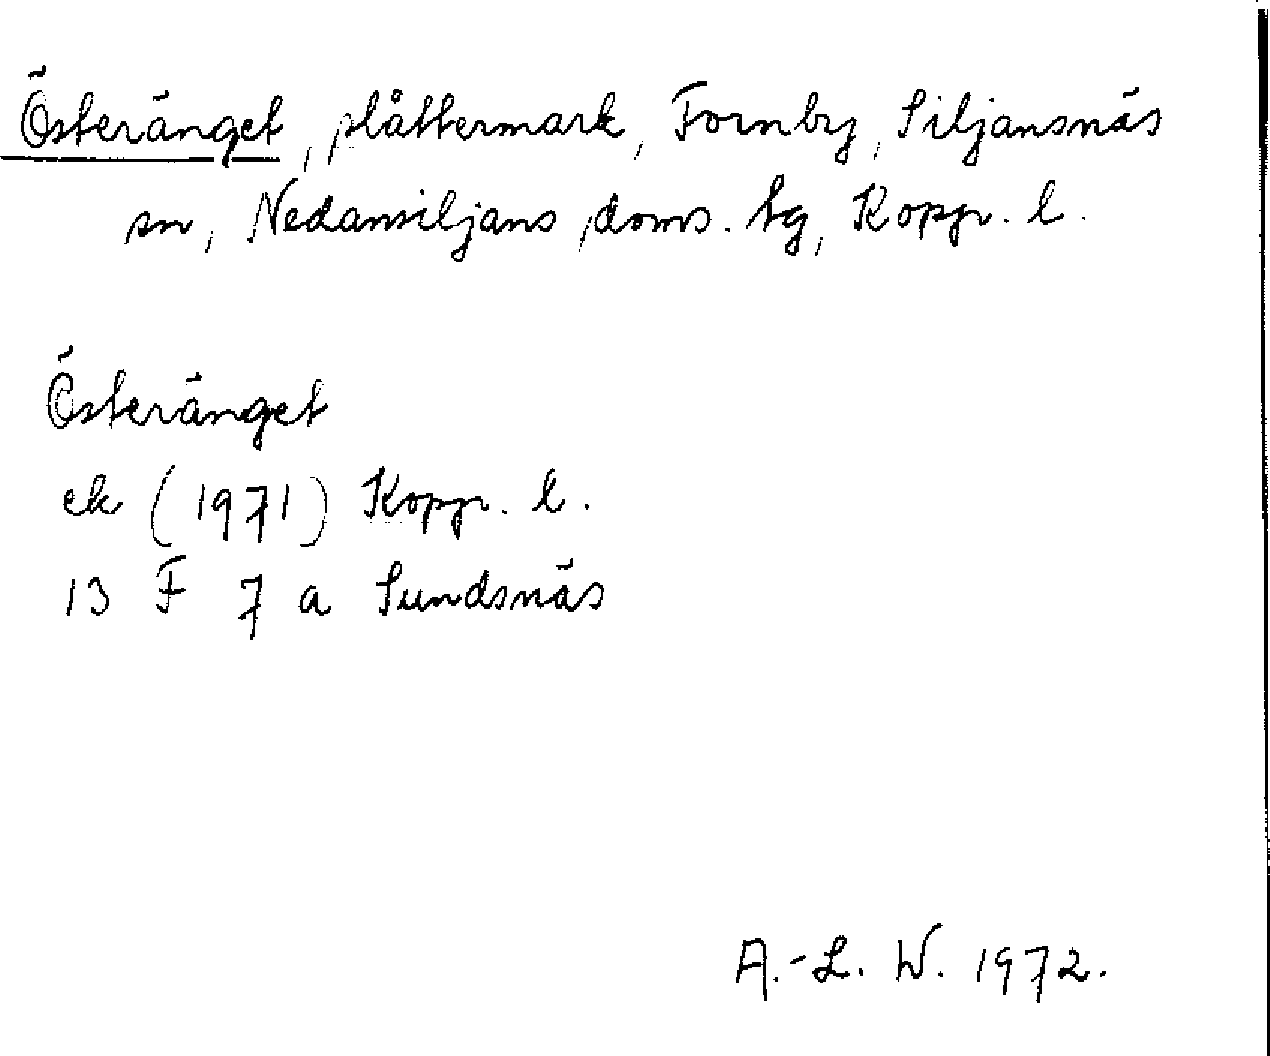 Österänget, plåttermark, Fornby, Siljansnäs
sn, Nedansiljans doms. tg, Kopp. l.
Österänget
ek (1971) Kopp. l.
13 F 7 a Sundsnäs
A.-L. W. 1972.